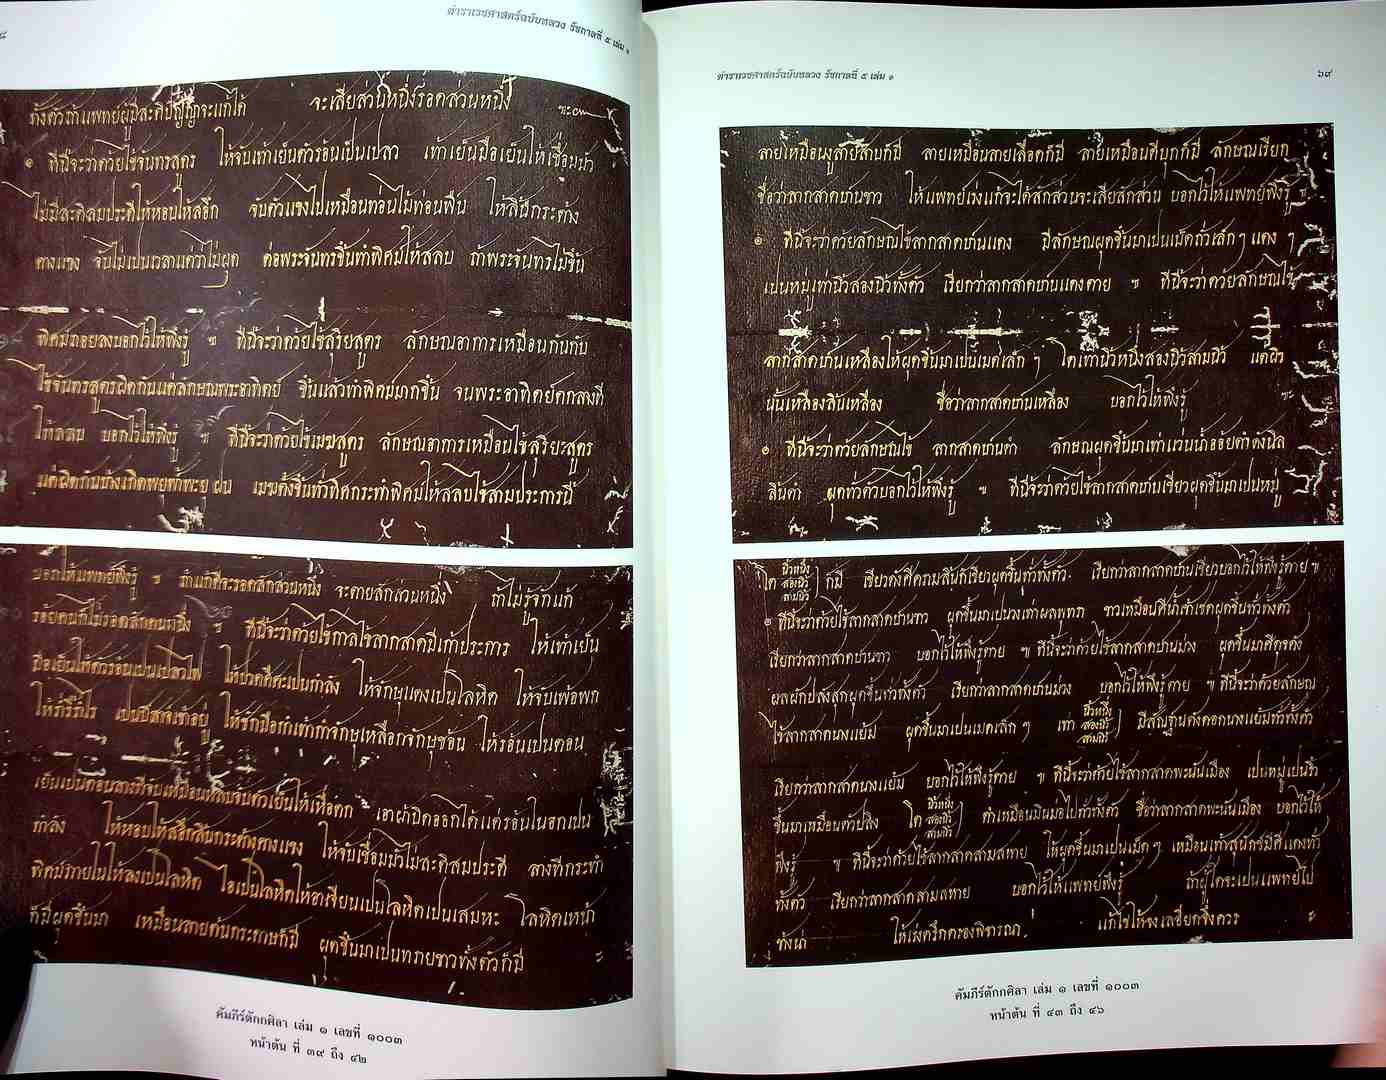 ๘
ตำราเวชศาสตร์ฉบับหลวง รัชกาลที่ ๕ เล่ม ๑
ทั้งตัวถ้าแพทย์ผู้มีสะติปัญญาจะแก้ได้ จะเสียส่วนหนึ่งรอดส่วนหนึ่ง ฯะ๛
๏ ทีนี้จะว่าด้วยไข้จันทรสูตร ให้จับเท้าเย็นตัวร้อนเป็นเปลว เท้าเย็นมือเย็นให้เชื่อมมัว
ไม่มีสะติสมประดีให้หอบให้สอึก จับตัวแขงไปเหมือนท่อนไม้ท่อนฟืน ให้ลิ้นกระด้าง
คางแขง จับไม่เป็นเวลาแต่ว่าไม่ผุด ต่อพระจันทรขึ้นทำพิศม์ให้สลบ ถ้าพระจันทรไม่ขึ้น
พิศม์ถอยลงบอกไว้ให้พึงรู้ ฯ ทีนี้จะว่าด้วยไข้สุริยสูตร ลักษณอาการเหมือนกันกับ
ไข้จันทรสูตรผิดกันแต่ลักษณพระอาทิตย์ ขึ้นแล้วทำพิศม์มากขึ้น จนพระอาทิตย์ตกลงที
ให้สลบ บอกไว้ให้พึงรู้ ฯ ทีนี้จะว่าด้วยไข้เมฆสูตร ลักษณอาการเหมือนไข้สุริยะสูตร
แต่ผิดกันบ้างเกิดพยุห์พะยุฝน เมฆตั้งขึ้นทั่วทิศกระทำพิศม์ให้สลบไข้สามประการนี้
บอกให้แพทย์พึงรู้ ฯ ถ้าแก้ดีจะรอดสักส่วนหนึ่ง จะตายสักส่วนหนึ่ง ถ้าไม่รู้จักแก้
ร้อยคนก็ไม่รอดสักคนหนึ่ง ฯ ทีนี้จะว่าด้วยไข้กาลไข้ลากสาดมีเก้าประการ ให้เท้าเย็น
มือเย็นให้ตัวร้อนเป็นเปลวไฟ ให้ปวดศีศะเป็นกำลัง ให้จักษุแดงเป็นโลหิต ให้จับเพ้อพก
ให้ร่ำรี้ร่ำไร เป็นปีสาจเข้าอยู่ ให้ชักมือกำเท้ากำจักษุเหลือกจักษุช้อน ให้ร้อนเป็นตอน
เย็นเป็นตอนลางทีจับเหมือนหลับจับตัวเย็นให้เหื่อตก เอาผ้าปิดออกได้แต่ร้อนในอกเป็น
กำลัง ให้หอบให้สอึกลิ้นกระด้างคางแขง ให้จับเชื่อมมัวไม่สะติสมประดี ลางทีกระทำ
พิศม์ภายในให้ลงเป็นโลหิต ไอเป็นโลหิตให้อาเจียนเป็นโลหิตเป็นเสมหะ โลหิตเหน้า
ก็มีผุดขึ้นมา เหมือนลายต้นกระดาษก็มี ผุดขึ้นมาเป็นทรายขาวทั้งตัวก็มี
คัมภีร์ตักกศิลา เล่ม ๑ เลขที่ ๑๐๐๓
หน้าต้น ที่ ๓๙ ถึง ๔๒
ตำราเวชศาสตร์ฉบับหลวง รัชกาลที่ ๕ เล่ม ๑
๖๙
ลายเหมือนงูลายสาบก็มี ลายเหมือนลายเลือดก็มี ลายเหมือนดีบุกก็มี ลักษณเรียก
ชื่อว่าลากสาดปานขาว ให้แพทย์เร่งแก้จะได้สักส่วนจะเสียสักส่วน บอกไว้ให้แพทย์พึงรู้ ฯ
๏ ทีนี้จะว่าด้วยลักษณไข้ลากสาดปานแดง มีลักษณผุดขึ้นมาเป็นเม็ดถั่วเล็กๆ แดง ๆ
เป็นหมู่เท่านิ้วสองนิ้วทั้งตัว เรียกว่าลากสาดปานแดงตาย ฯ ทีนี้จะว่าด้วยลักษณไข้
ลากสาดปานเหลืองให้ผุดขึ้นมาเป็นเมดเล็ก ๆ โตเท่านิ้วหนึ่งสองนิ้วสามนิ้ว แต่ผิว
นั้นเหลืองลิ้นเหลือง ชื่อว่าลากสาดปานเหลือง บอกไว้ให้พึงรู้ ฯะ
๏ ทีนี้จะว่าด้วยลักษณไข้ ลากสาดปานดำ ลักษณผุดขึ้นมาเท่าแว่นน้ำอ้อยดำดังนิล
ลิ้นดำ ผุดทั่วตัวบอกไว้ให้พึงรู้ ฯ ทีนี้จะว่าด้วยไข้ลากสาดปานเขียวผุดขึ้นมาเป็นหมู่
โต นิ้วหนึ่ง สองนิ้ว สามนิ้ว ก็มี เขียวดังศีครามลิ้นก็เขียวผุดขึ้นทั่วทั้งตัว เรียกว่าลากสาดปานเขียวบอกไว้ให้พึงรู้ตาย ฯ
๏ ทีนี้จะว่าด้วยไข้ลากสาดปานขาว ผุดขึ้นมาเป็นวงเท่าผลพุทรา ขาวเหมือนศีน้ำเข้าเชดผุดขึ้นทั่วทั้งตัว
เรียกว่าลากสาดปานขาว บอกไว้ให้พึงรู้ตาย ฯ ทีนี้จะว่าด้วยไข้ลากสาดปานม่วง ผุดขึ้นมาศีดุจดัง
ผลผักปลังสุกผุดขึ้นทั่วทั้งตัว เรียกว่าลากสาดปานม่วง บอกไว้ให้พึงรู้ตาย ฯ ทีนี้จะว่าด้วยลักษณ
ไข้ลากสาดนางแย้ม ผุดขึ้นมาเป็นเมดเล็กๆ เท่า นิ้วหนึ่ง สองนิ้ว สามนิ้ว มีสัณฐานดังดอกนางแย้มทั่วทั้งตัว
เรียกว่าลากสาดนางแย้ม บอกไว้ให้พึงรู้ตาย ฯ ทีนี้จะว่าด้วยไข้ลากสาดพะนันเมือง เป็นหมู่เป็นริ้ว
ขึ้นมาเหมือนตัวปลิง โต นิ้วหนึ่ง สองนิ้ว สามนิ้ว ดำเหมือนมินม่อไปทั่วทั้งตัว ชื่อว่าลากสาดพะนันเมือง บอกไว้ให้
พึงรู้ ฯ ทีนี้จะว่าด้วยไข้ลากสาดสามสหาย ให้ผุดขึ้นมาเป็นเม็ดๆ เหมือนเท้าสุนักข์มีศีแดงทั่ว
ทั้งตัว เรียกว่าลากสาดสามสหาย บอกไว้ให้แพทย์พึงรู้ ถ้าผู้ใดจะเป็นแพทย์ไป
ข้างน่า ให้เร่งตรึกตรองพิจารณา แก้ไขให้จงเลอียดจึ่งควร ฯ
คัมภีร์ตักกศิลา เล่ม ๑ เลขที่ ๑๐๐๓
หน้าต้น ที่ ๔๓ ถึง ๔๖